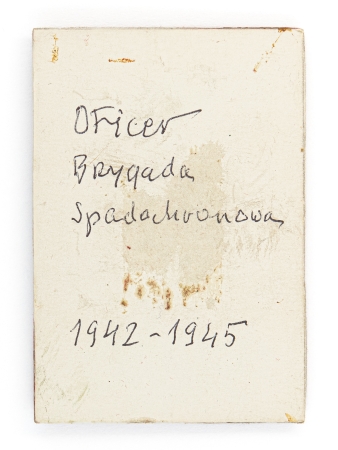 Oficer
Brygada
Spadochronowa
1942-1945